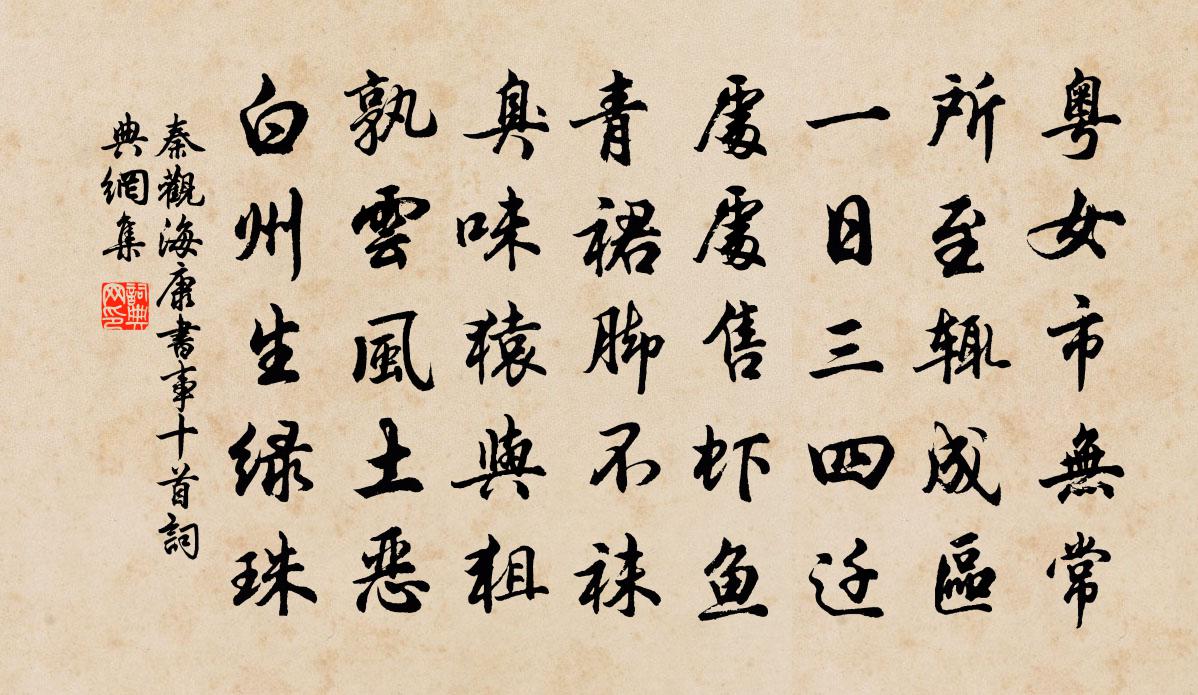 粵女市無常
所至輙成區
一日三四迁
處處售虾鱼
青裙脚不袜
臭味猿與狙
孰雲風土惡
白州生绿珠
秦觀海康書事十首詞
典網集
詞典
网印